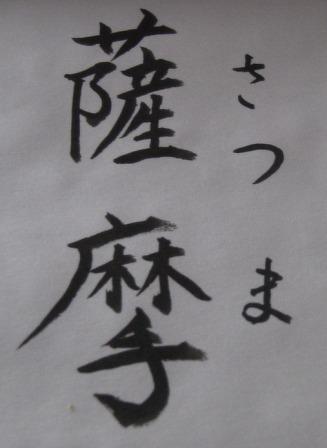 薩摩
さつま